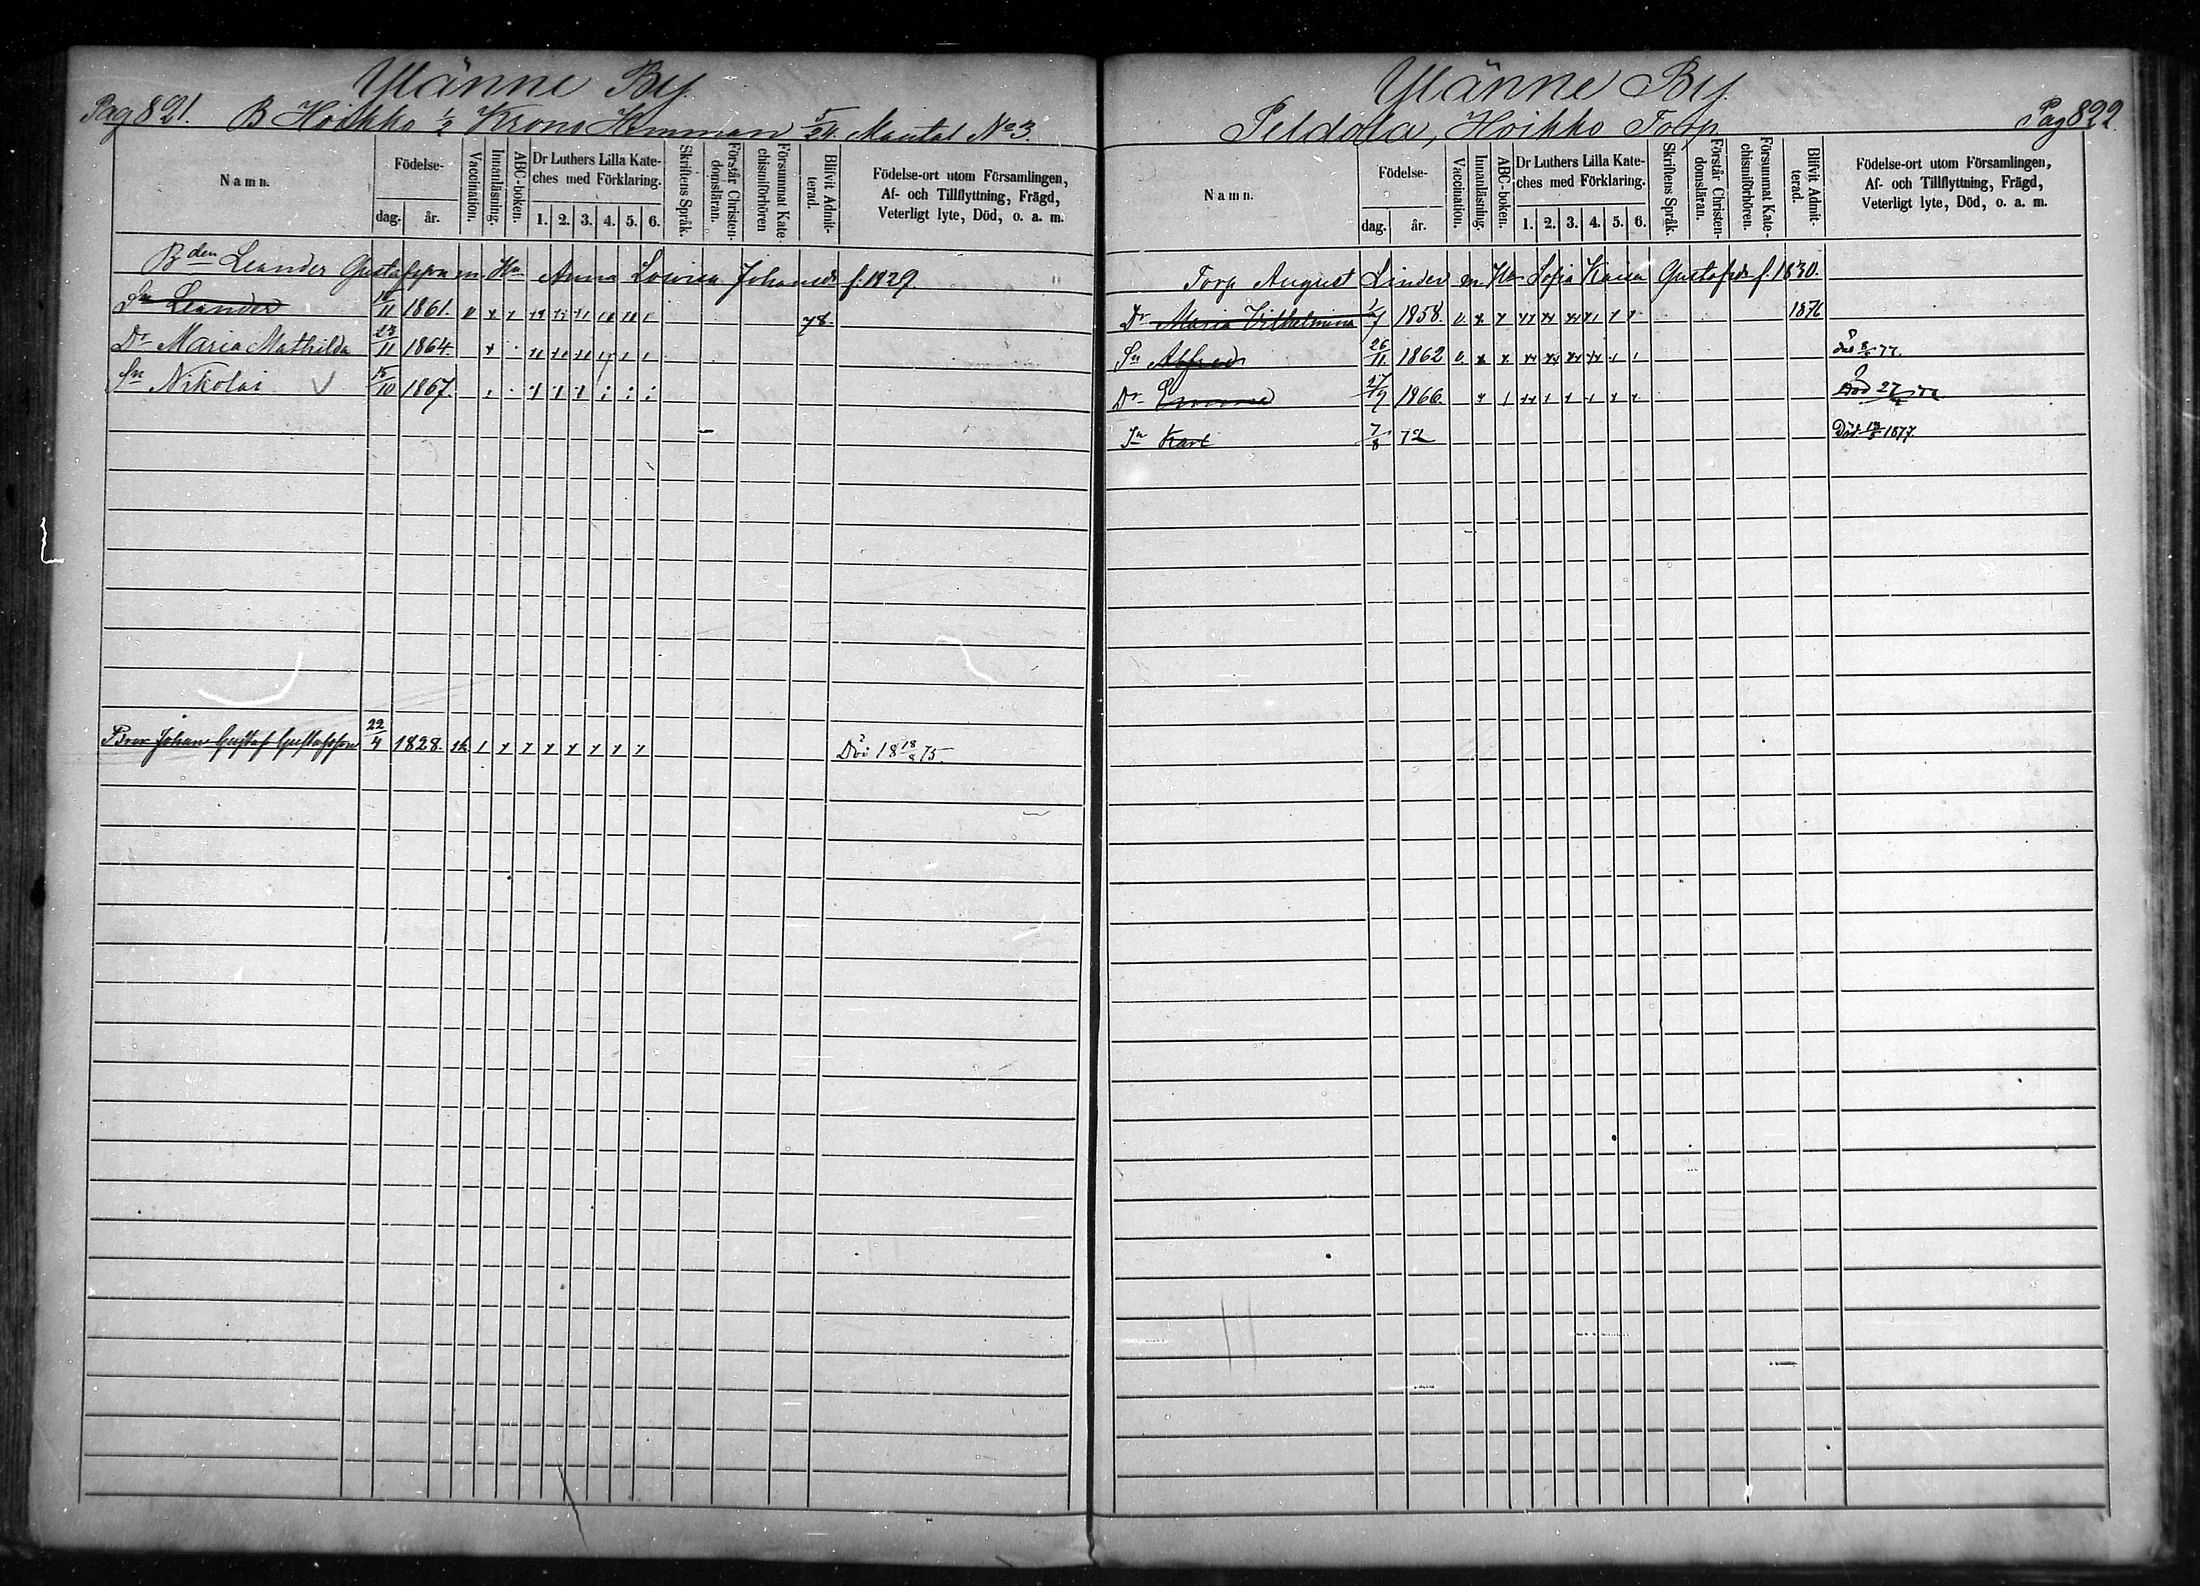 Ylänne By.
Pag 821. B Hoikko 1/2 Krono Hemman 5/24 Mantal No 3.
Namn. Födelse- dag. år. Vaccination. Innanläsning. ABC-boken. Dr Luthers Lilla Kateches med Förklaring. 1. 2. 3. 4. 5. 6. Skriftens Språk. Förstår Christendomsläran. Försummat Katechismiförhören Blifvit Admitterad. Födelse-ort utom Församlingen, Af- och Tillflyttning, Frägd, Veterligt lyte, Död, o. a. m.
Bden Leander Gustafsson m. Hu Anna Lovisa Johansdr f. 1829
Sn Leander 11 1861. 78.
Dr Maria Mathilda 23/11 1864.
Sn Nikolai 15/10 1867.
Johan Gustaf Gustafsson 22/4 1828. Död 18 18/8 75.
Ylänne By.
Peldola, Hoikko Torp Pag 822.
Namn. Födelse- dag. år. Vaccination. Innanläsning. ABC-boken. Dr Luthers Lilla Kateches med Förklaring. 1. 2. 3. 4. 5. 6. Skriftens Språk. Förstår Christendomsläran. Försummat Katechismiförhören. Blifvit Admitterad. Födelse-ort utom Församlingen, Af- och Tillflyttning, Frägd, Veterligt lyte, Död, o. a. m.
Torp August Linder m. Hu Sofia Kaisa Gustafsdr f. 1830.
Dr Maria Vilhelmina 1858. 1876
Sn Alfred 26/11 1862 77.
Dr Emma 27/9 1866 Död 27
Sn Karl 7/8 72 Död 1877.